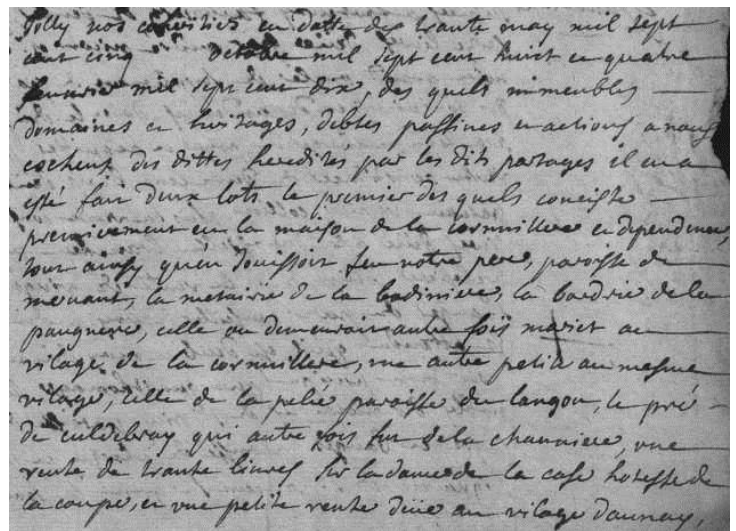 Jolly nos cohéritiers en datte des trante may mil sept
cent cinq octobre mil sept cent huict et quatre
feuvrier mil sept cent dix, des quels immeubles
domaines et heritages, debtes passives et actions a nous
eschent des dittes heredités par les dits partages il en a
esté fait deux lots le premier des quels conciste
premierement en la maison de la cornuillere et dependences,
tout ainsy qu'en jouissoit feu notre pere, paroisse de
menant, la metairie de la badiniere, la bordrie de la
paugnerie, celle ou demeuroit autre fois mariet au
vilage de la cornuillere, une autre petite au mesme
vilage, celle de la pelié paroisse du langon, le pré
de culdebray qui autre fois fut de la chauviere, une
rente de trante livres sur la dame de la case hotesse de
la coupe, et une petite rente düe au vilage daunay